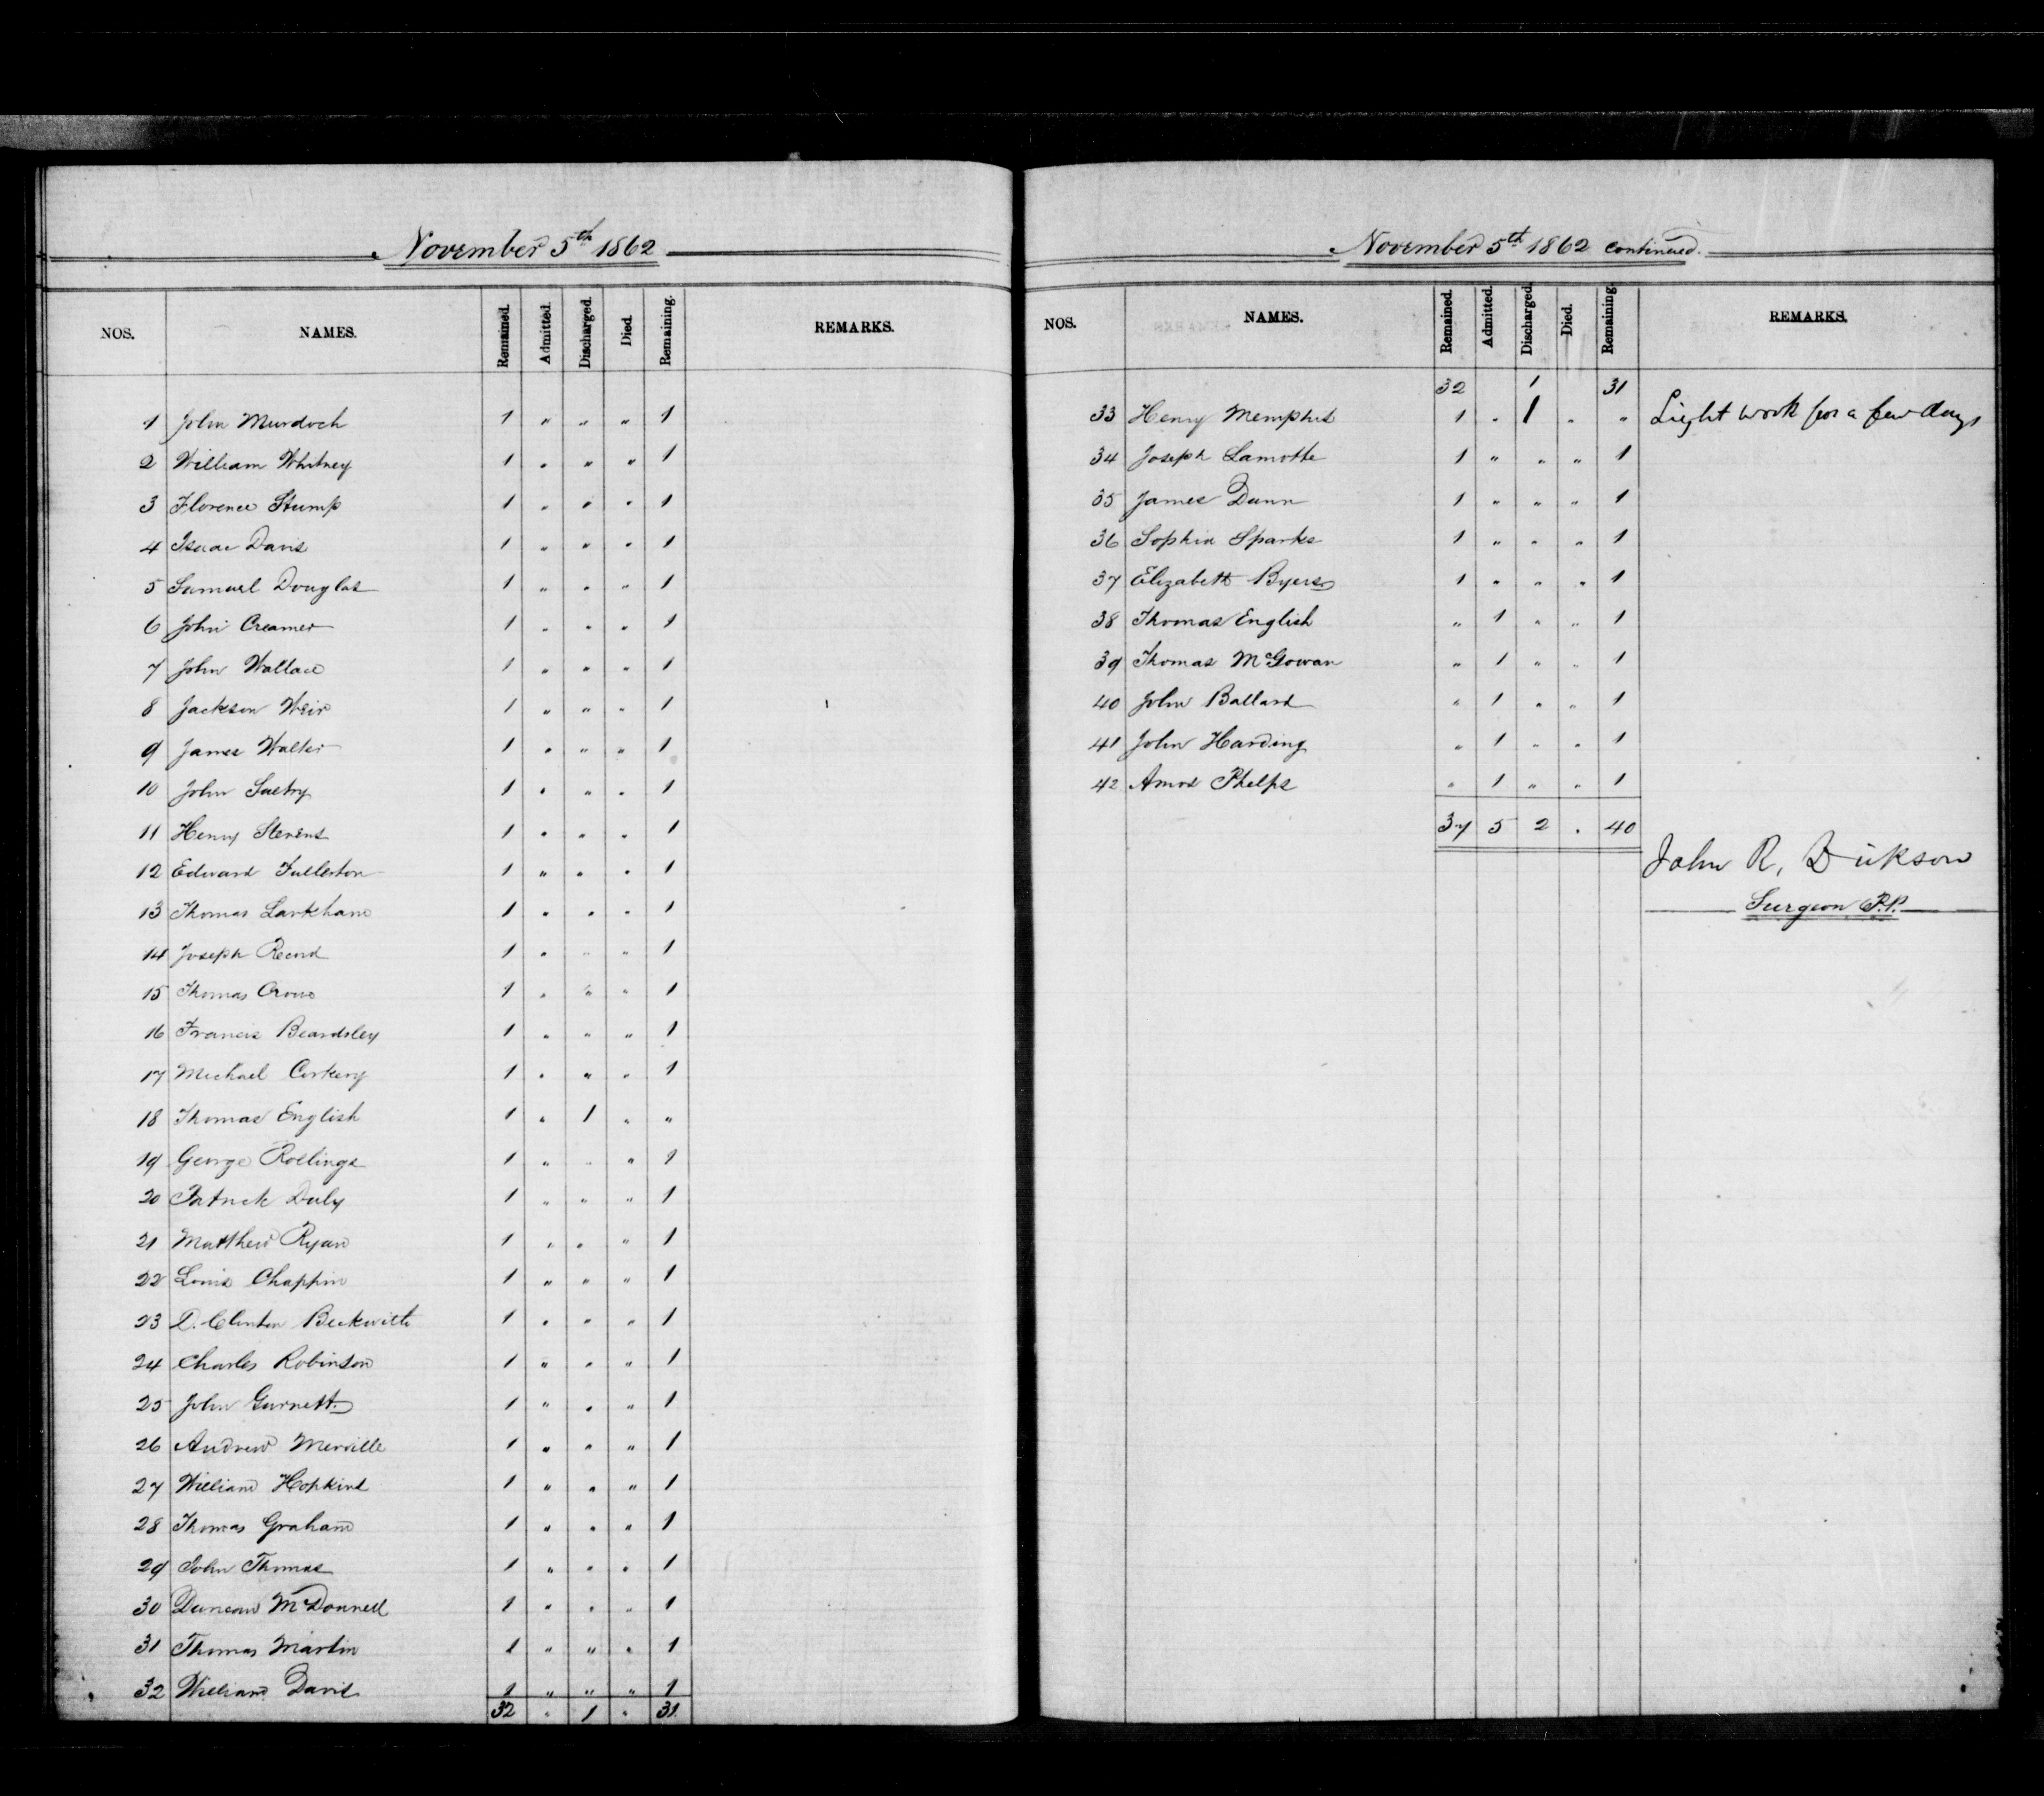 November 5th 1862
NOS. NAMES. Remained. Admitted. Discharged. Died. Remaining. REMARKS.
1 John Murdoch 1 " " " 1
2 William Whitney 1 " " " 1
3 Florence Stump 1 " " " 1
4 Isaac Davis 1 " " " 1
5 Samuel Douglas 1 " " " 1
6 John Creamer 1 " " " 1
7 John Wallace 1 " " " 1
8 Jackson Weir 1 " " " 1
9 James Walker 1 " " " 1
10 John 1 " " " 1
11 Henry Stevens 1 " " " 1
12 Edward Fullerton 1 " " " 1
13 Thomas Larkham 1 " " " 1
14 Joseph Record 1 " " " 1
15 Thomas Crow 1 " " " 1
16 Francis Beardsley 1 " " " 1
17 Michael Corkery 1 " " " 1
18 Thomas English 1 " 1 " "
19 George Rollings 1 " " " 1
20 Patrick Daly 1 " " " 1
21 Matthew Ryan 1 " " " 1
22 Louis Chappin 1 " " " 1
23 D. Clinton Beckwith 1 " " " 1
24 Charles Robinson 1 " " " 1
25 John Garnett 1 " " " 1
26 Andrew Merville 1 " " " 1
27 William Hopkins 1 " " " 1
28 Thomas Graham 1 " " " 1
29 John Thomas 1 " " " 1
30 Duncan McDonnell 1 " " " 1
31 Thomas Martin 1 " " " 1
32 William Davis 1 " " " 1
32 " 1 " 31
November 5th 1862 continued.
NOS. NAMES. Remained. Admitted. Discharged. Died. Remaining. REMARKS.
32 1 31
33 Henry Memphis 1 " 1 " " Light work for a few days
34 Joseph Lamotte 1 " " " 1
35 James Dunn 1 " " " 1
36 Sophia Sparks 1 " " " 1
37 Elizabeth Byers 1 " " " 1
38 Thomas English " 1 " " 1
39 Thomas McGowan " 1 " " 1
40 John Ballard " 1 " " 1
41 John Harding " 1 " " 1
42 Amos Phelps " 1 " " 1
37 5 2 " 40
John R. Dickson
Surgeon P.P.